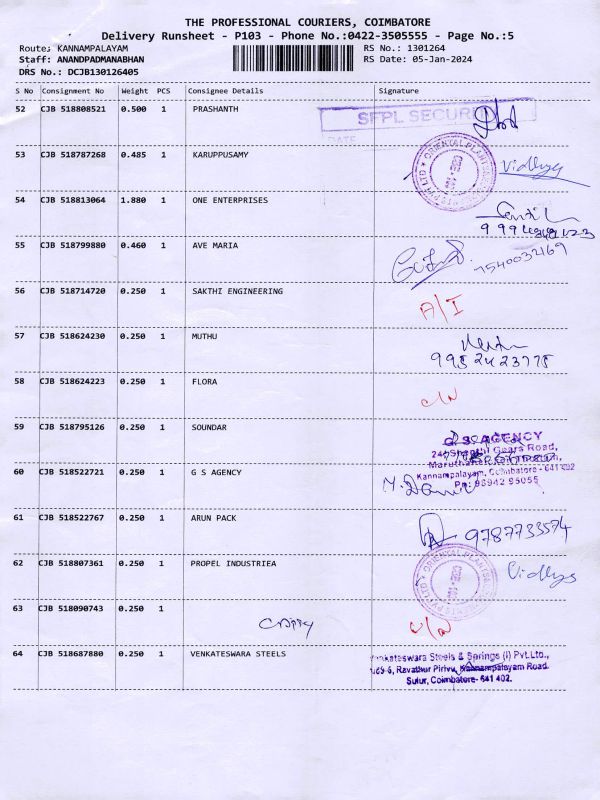 THE PROFESSIONAL COURIERS, COIMBATORE
Delivery Runsheet - P103 - Phone No.:0422-3505555 - Page No.:5
Route: KANNAMPALAYAM RS No.: 1301264
Staff: ANANDPADMANABHAN RS Date: 05-Jan-2024
DRS No.: DCJB130126405
S No Consignment No Weight PCS Consignee Details Signature
52 CJB 518808521 0.500 1 PRASHANTH
SFPL SECURI
DATE
53 CJB 518787268 0.485 1 KARUPPUSAMY
Vidhya
54 CJB 518813064 1.880 1 ONE ENTERPRISES
55 CJB 518799880 0.460 1 AVE MARIA
7540032169
56 CJB 518714720 0.250 1 SAKTHI ENGINEERING
A/I
57 CJB 518624230 0.250 1 MUTHU
58 CJB 518624223 0.250 1 FLORA
C/N
59 CJB 518795126 0.250 1 SOUNDAR
G.S. AGENCY
Gears Road,
60 CJB 518522721 0.250 1 G S AGENCY
Kannampalayam, Coimbatore - 641 402
Ph: 98942 95055
61 CJB 518522767 0.250 1 ARUN PACK
9787733574
62 CJB 518807361 0.250 1 PROPEL INDUSTRIEA
Vidhya
63 CJB 518090743 0.250 1
C/N
64 CJB 518687880 0.250 1 VENKATESWARA STEELS
Venkateswara Steels & Springs (I) Pvt.Ltd.,
Ravathur Pirivu, Kannampalayam Road,
Sulur, Coimbatore- 641 402.